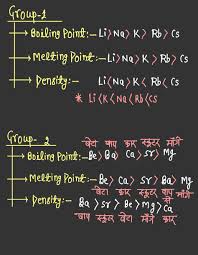 Group-1
Boiling Point:- Li > Na > K > Rb > Cs
Melting Point:- Li > Na > K > Rb > Cs
Density:- Li < Na > K < Rb < Cs
* Li < K < Na < Rb < Cs
Group- 2
बेटा बाप कार स्कूटर माँगे
Boiling Point:- Be > Ba > Ca > Sr > Mg
Melting Point:- Be > Ca > Sr > Ba > Mg
बेटा कार स्कूटर बाप से माँगे
Density:- Ba > Sr > Be > Mg > Ca
बाप स्कूटर बेटा माँगे कार